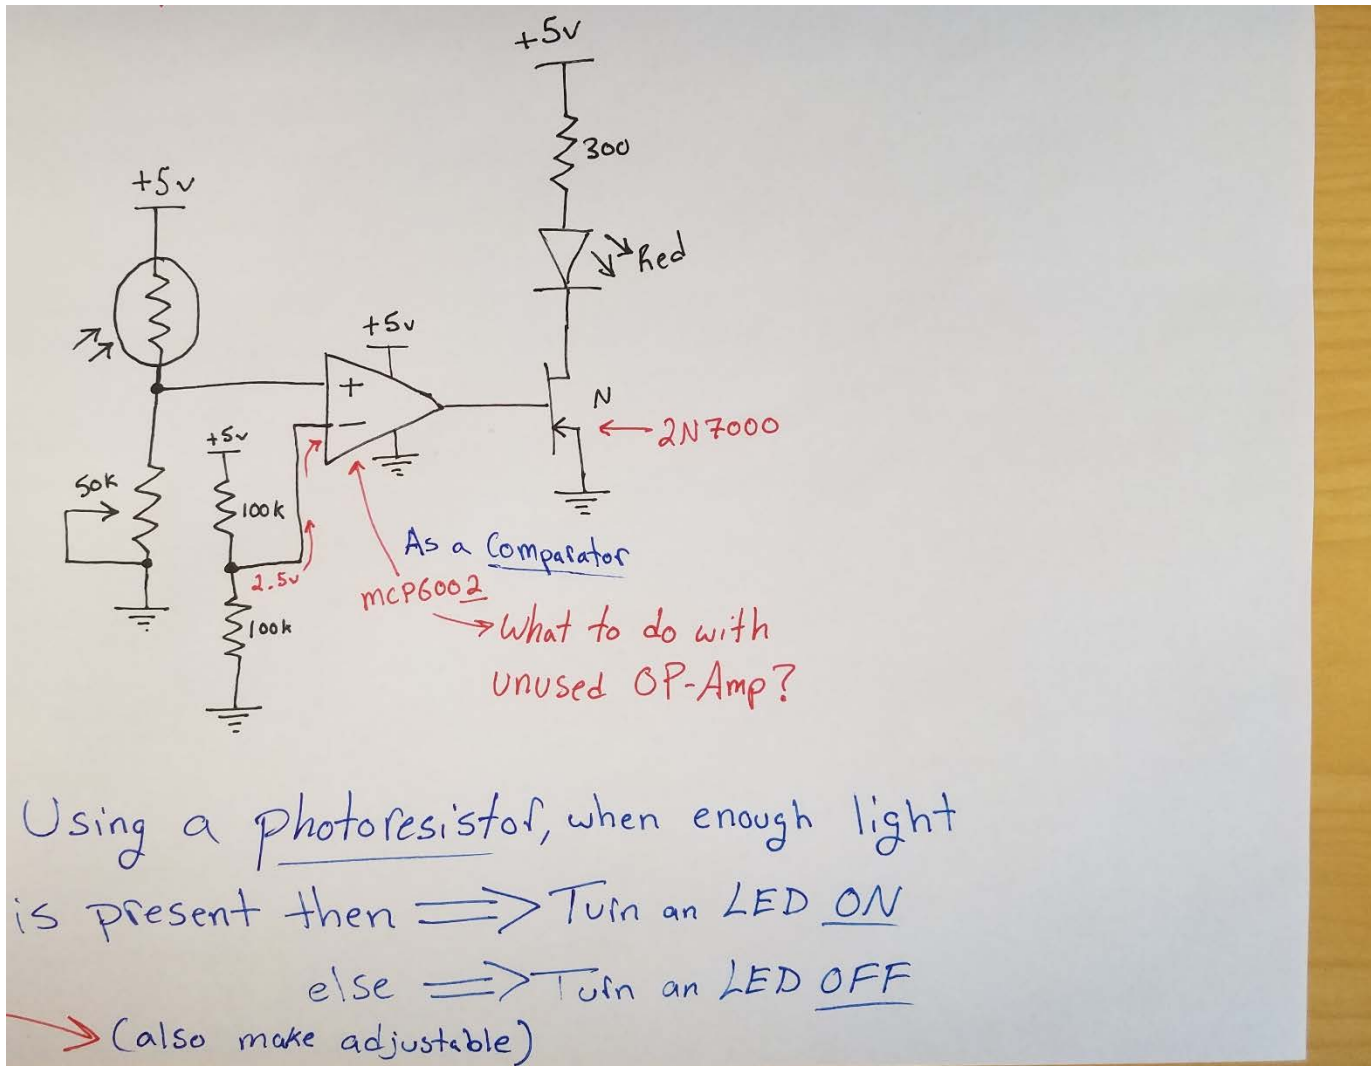 +5v
300
+5v
Red
+5v
+
−
N
2N7000
+5v
50k
100k
As a Comparator
2.5v
MCP6002
100k
What to do with
unused OP-Amp?
Using a photoresistor, when enough light
is present then ⟹ Turn an LED ON
else ⟹ Turn an LED OFF
(also make adjustable)